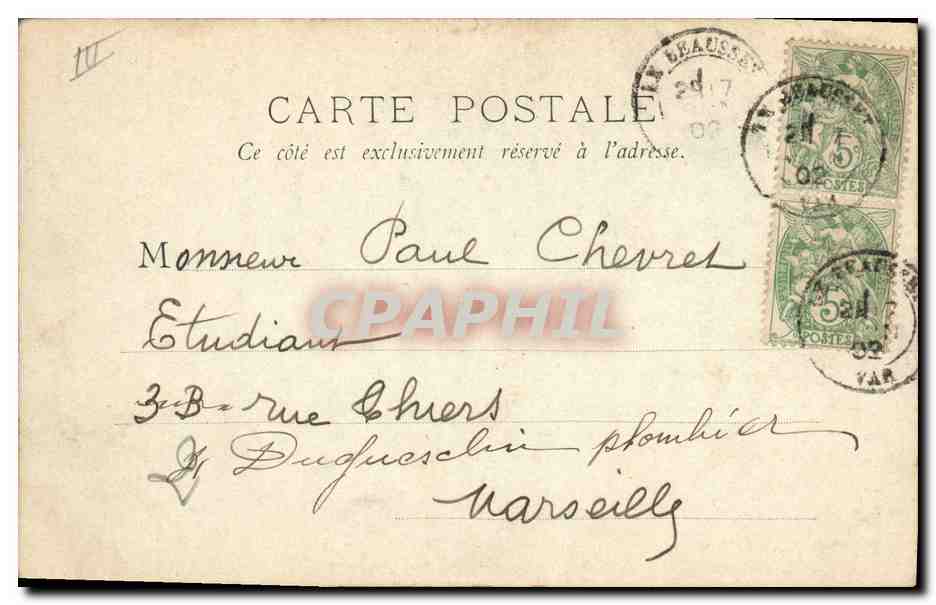 III
CARTE POSTALE
Ce côté est exclusivement réservé à l'adresse.
LE BEAUSSET
02
LE BEAUSSET
02
VAR
5c
POSTES
5c
POSTES
LE BEAUSSET
02
VAR
Monsieur Paul Chevret
CPAPHIL
Etudiant
3 B rue Thiers
Duguesclin plombier
Marseille